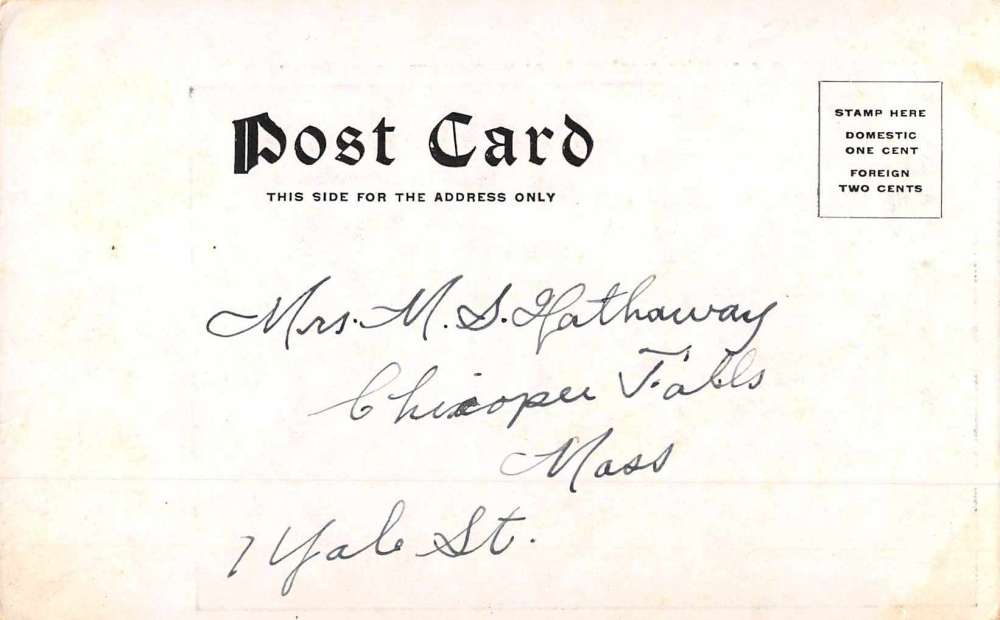 Post Card
THIS SIDE FOR THE ADDRESS ONLY
STAMP HERE
DOMESTIC
ONE CENT
FOREIGN
TWO CENTS
Mrs. M. S. Hathaway
Chicopee Falls
Mass
7 Yale St.